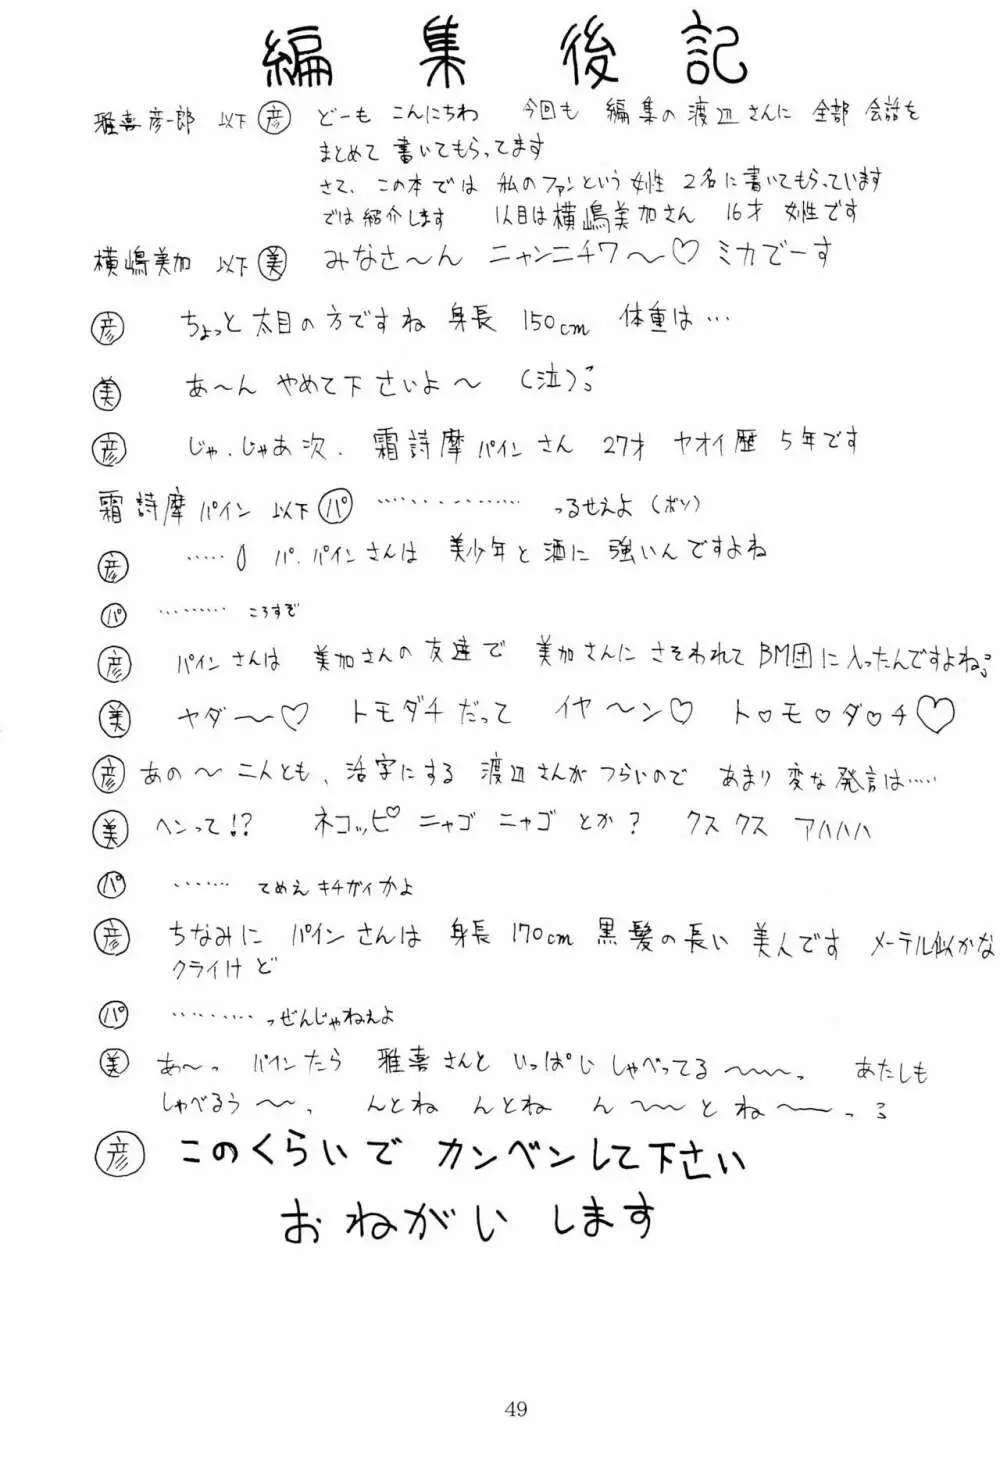 編集後記
雅喜彦一郎 以下彦 どーも こんにちわ 今回も 編集の渡辺さんに 全部 会話を
まとめて 書いてもらってます
さて、この本では 私のファンという 女性 2名に書いてもらっています
では紹介します 1人目は横嶋美加さん 16才 女性です
横嶋美加 以下美 みなさ〜ん ニャンニチワ〜♡ミカでーす
彦 ちょっと太目の方ですね 身長 150cm 体重は…
美 あ〜ん やめて下さいよ〜 (泣)
彦 じゃ、じゃあ次、霜詩摩パインさん 27才 ヤオイ歴 5年です
霜詩摩パイン 以下パ ……………… っるせえよ(ボソ)
彦 …… パ、パインさんは 美少年と酒に 強いんですよね
パ ……… ころすぞ
彦 パインさんは 美加さんの友達で 美加さんに さそわれて BM団に入ったんですよね
美 ヤダ〜〜♡ トモダチだって イヤ〜ン♡ ト♡モ♡ダ♡チ♡
彦 あの〜 二人とも、活字にする 渡辺さんが つらいので あまり 変な発言は……
美 ヘンって!? ネコッピ♡ニャゴ ニャゴ とか? クス クス アハハハ
パ ……… てめえキチガイかよ
彦 ちなみに パインさんは 身長170cm 黒髪の長い 美人です メーテル似かな
クライけど
パ ………… っぜんじゃねえよ
美 あ〜っ パインたら 雅喜さんと いっぱい しゃべってる〜〜〜っ あたしも
しゃべるぅ〜〜っ んとね んとね ん〜〜とね〜〜っ
彦 このくらいで カンベンして下さい
おねがい します
49